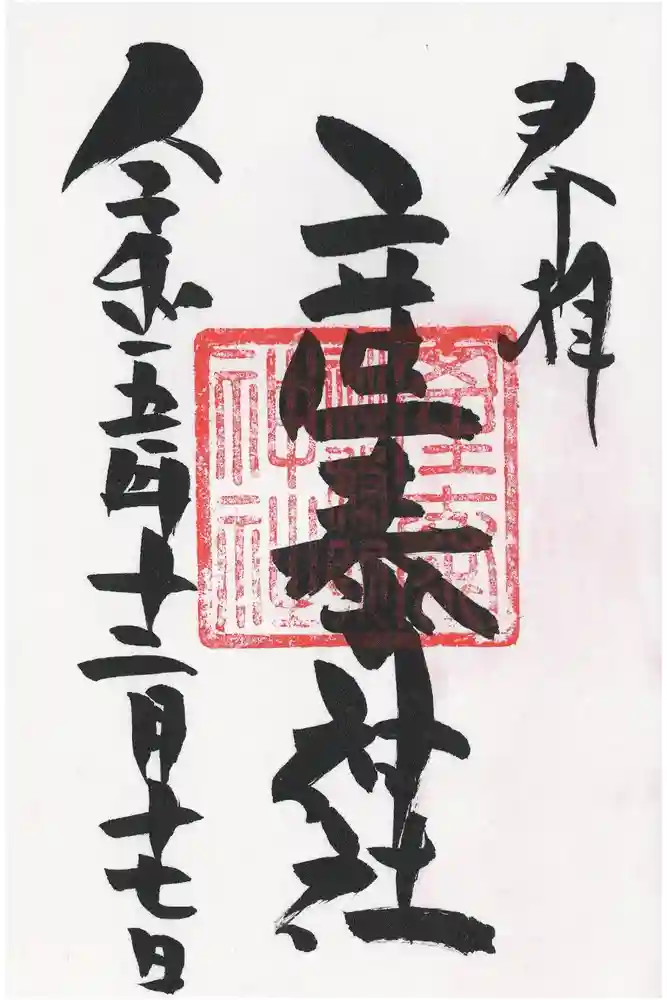 奉拝
産泰神社
令和五年十二月十七日